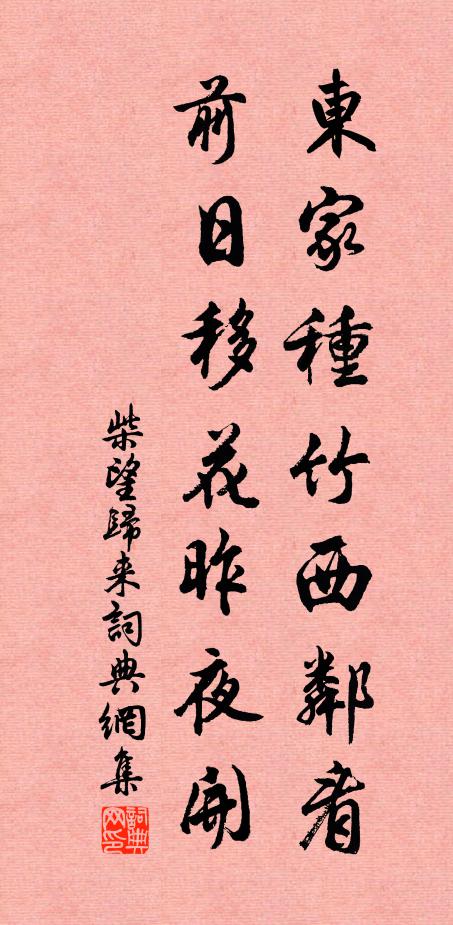 東家種竹西鄰看
前日移花昨夜開
柴望歸来詞典網集
詞典网印